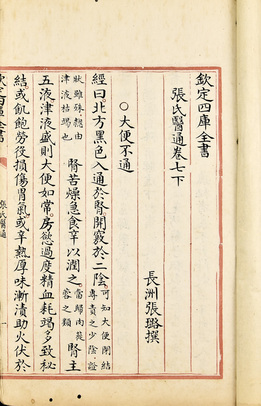 欽定四庫全書
張氏醫通卷七下
長洲張璐撰
○大便不通
經曰北方黑色入通於腎開竅於二陰可知大便閉結專責之少陰證
狀雖殊總由津液枯竭也腎苦燥急食辛以潤之當歸肉蓯蓉之類腎主
五液津液盛則大便如常房慾過度精血耗竭多致秘
結或飢飽勞役損傷胃氣或辛熱厚味漸漬助火伏於
欽定四庫全書
張氏醫通